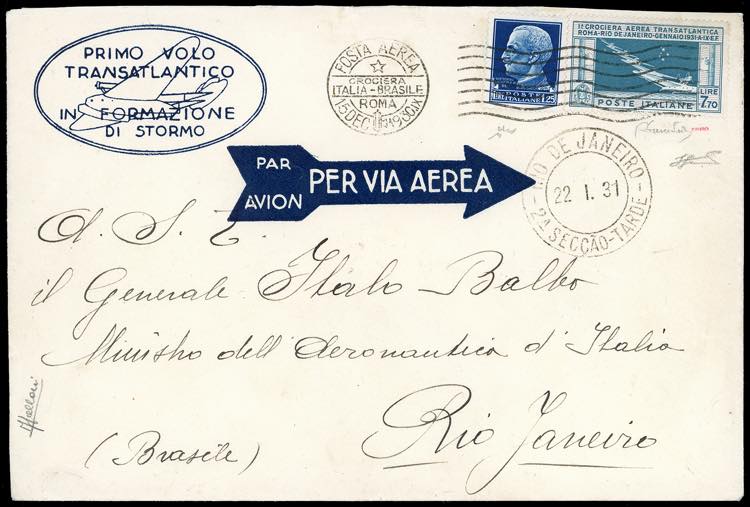 PRIMO VOLO
TRANSATLANTICO
IN FORMAZIONE
DI STORMO
POSTA AEREA
CROCIERA
ITALIA-BRASILE
ROMA
15 DEC 1930 IX
POSTE ITALIANE 1,25
IIª CROCIERA AEREA TRANSATLANTICA
ROMA-RIO DE JANEIRO-GENNAIO 1931-A.IX-E.F.
LIRE
7,70
POSTE ITALIANE
PAR
AVION
PER VIA AEREA
RIO DE JANEIRO
22 I. 31
2ª SECCÃO-TARDE
A. S. E.
il Generale Italo Balbo
Ministro dell'Aeronautica d'Italia
(Brasile)
Rio Janeiro